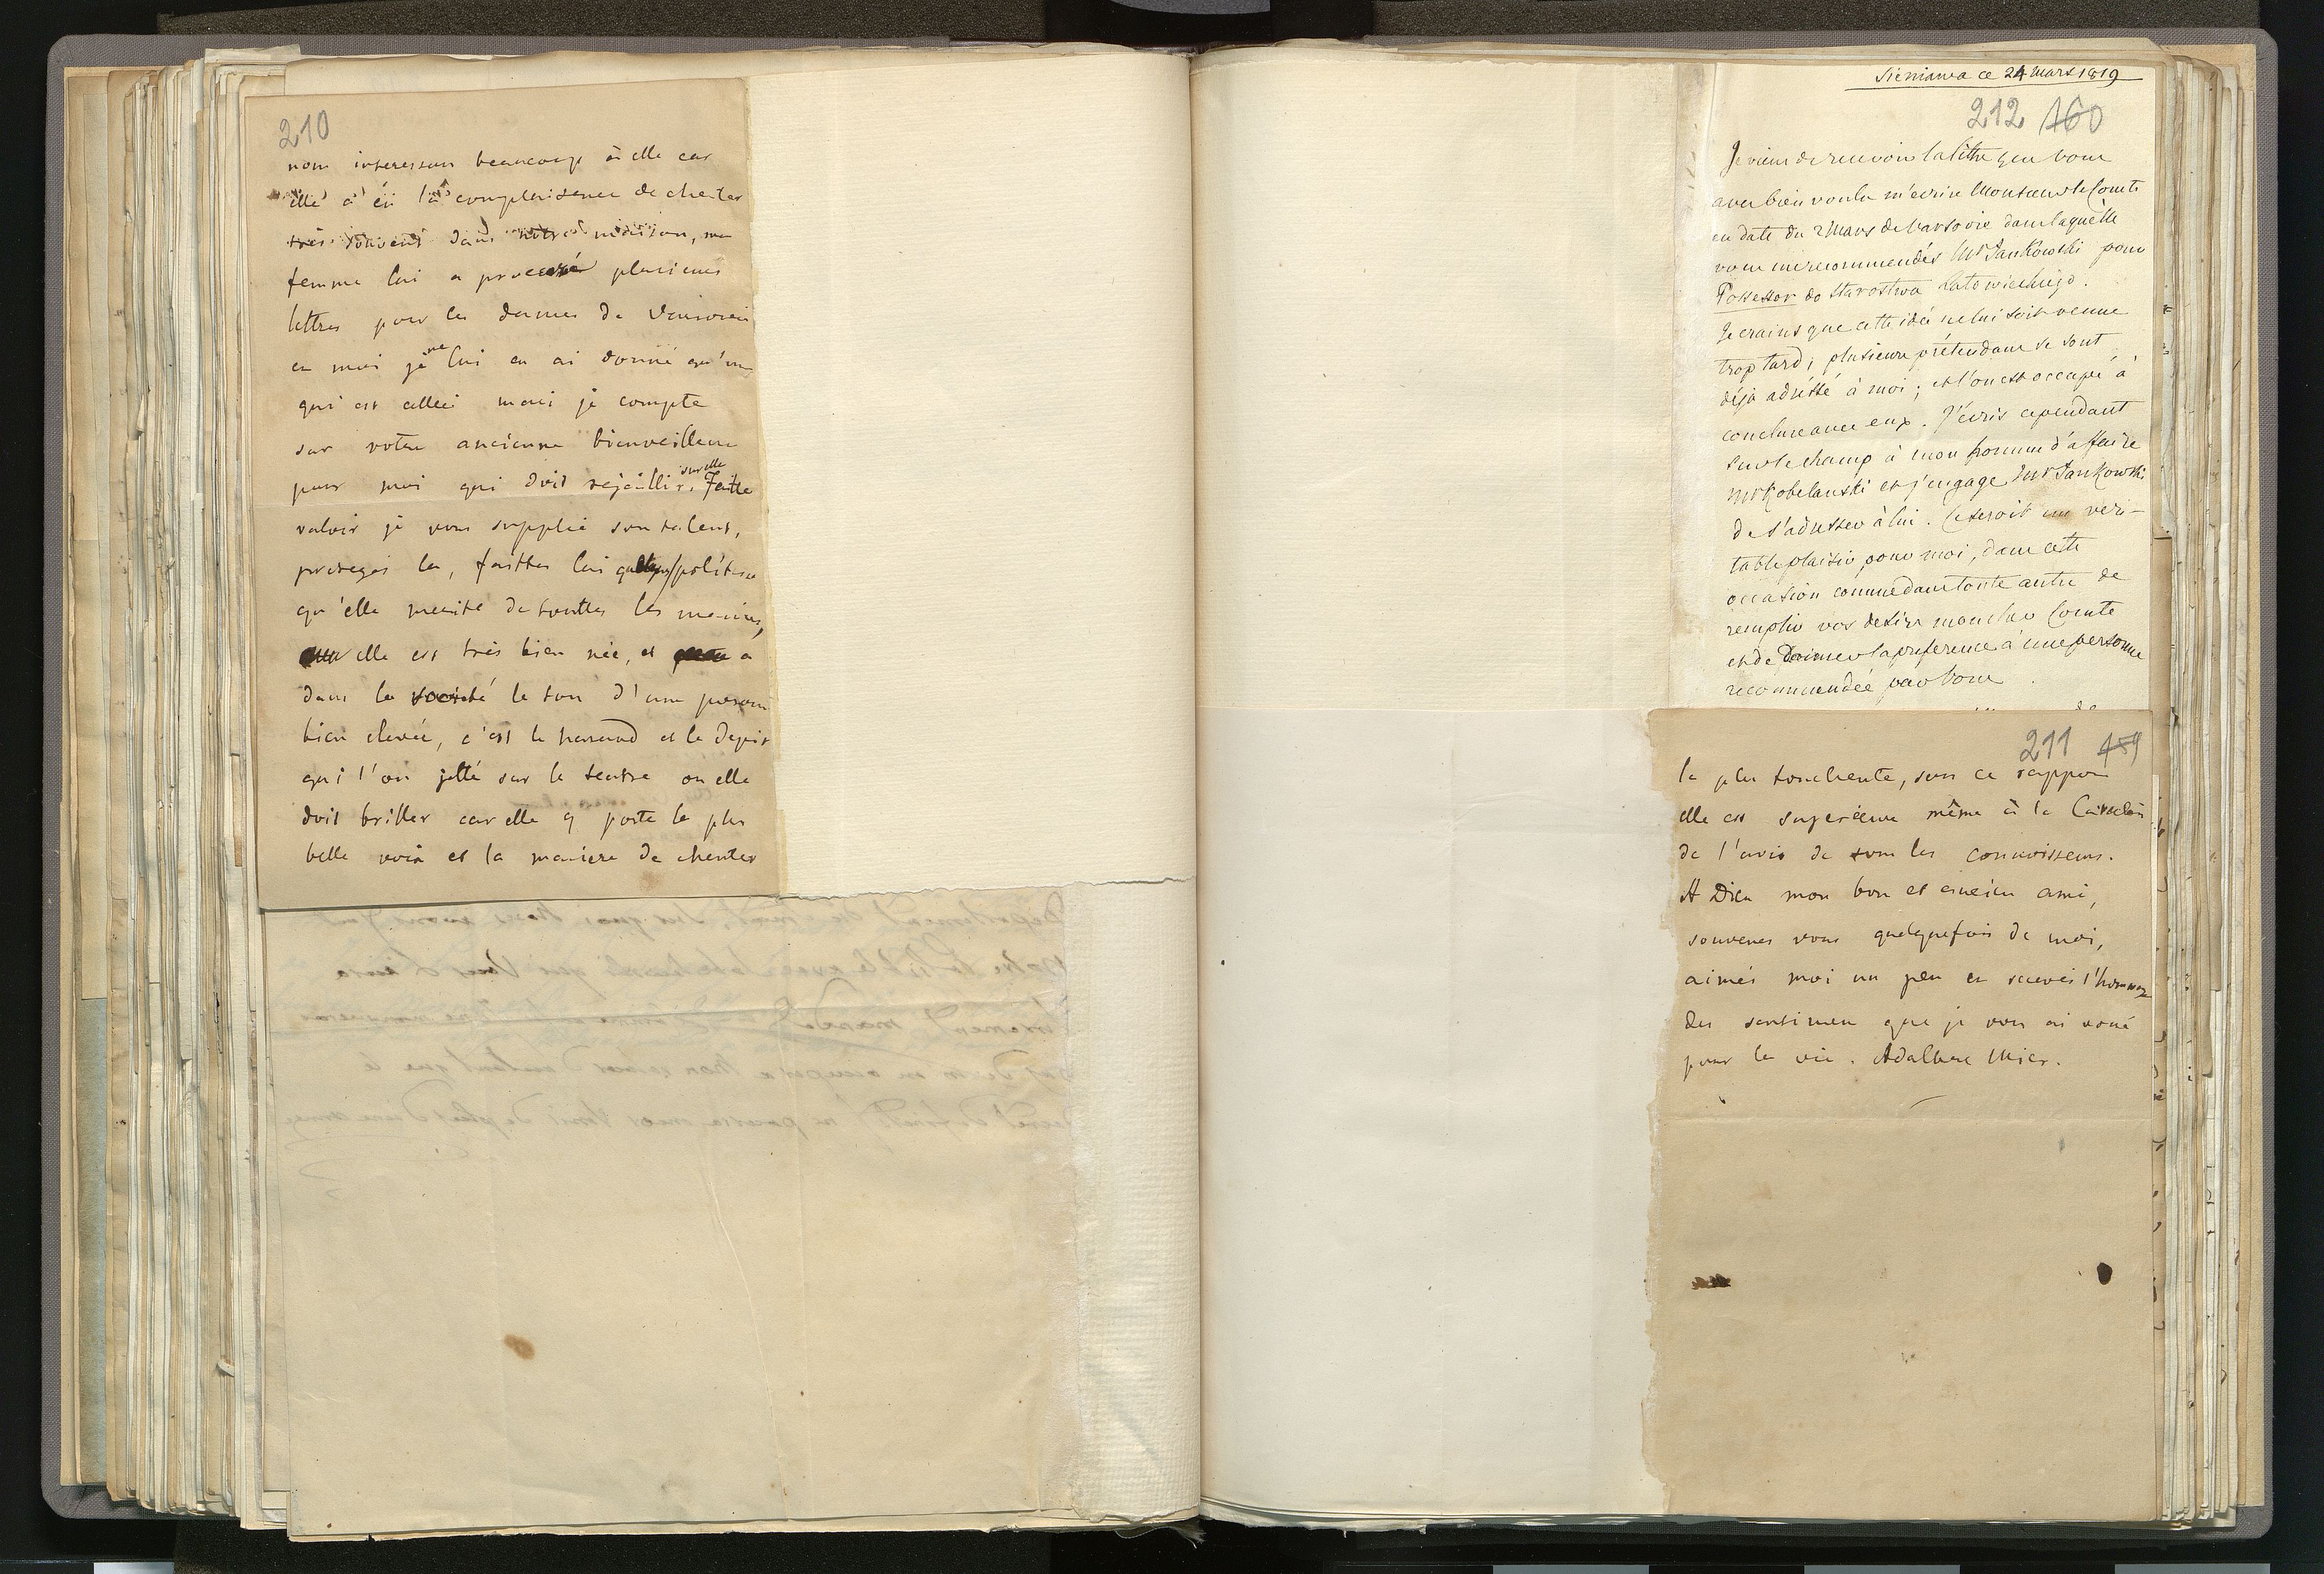 210
nous interessons beaucoup à elle car
elle a eü la complaisence de chenter
très souvent dans notre maison, ma
femme lui a procuré plusieurs
lettres pour les dames de
et moi je ne lui en ai donné qu'un
qui est celleci mais je compte
sur votre ancienne bienveillence
pour moi qui doit rejaillir sur elle. Faitte
valoir je vous supplie son talent,
protegés la, faittes lui quelques politesse
qu'elle merite de touttes les manieres,
elle est très bien née, et a
dans la société le ton d'une person
bien elevée, c'est le hasard et le depit
qui l'on jetté sur le teatre ou elle
doit briller car elle y porte la plus
belle voix et la maniere de chenter
Sieniawa ce 24 mars 1819
212 160
Je viens de recevoir la lettre que vous
avez bien voulu m'ecrire Monsieur le Comte
en date du 2 Mars de Varsovie dans laquelle
vous me recommendés Mr Jankowski pour
Possessor do Starostwa Latowickiego.
Je crains que cette idée ne lui soit venue
trop tard; plusieurs prétendans se sont
déja adressé à moi; et l'on est occupé à
conclure avec eux. J'écris cependant
sur le champ à mon homme d'affaire
Mr Kobelanski et j'engage Mr Jankowski
de s'adresser à lui. Ce seroit un veri-
table plaisir pour moi, dans cette
occasion comme dans toute autre de
remplir vos desirs mon cher Comte
et de donner la preference à une personne
recommendée par vous.
211 159
la plus touchente, sous ce rappor
elle est superieure même à la Catalani
de l'avis de tous les connoisseurs.
A Dieu mon bon et ancien ami,
souvenes vous quelquefois de moi,
aimés moi un peu et recevés l'hommage
des sentimen que je vous ai voué
pour la vie. Adalbert Mier.